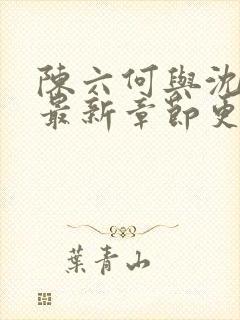 陳六何與沈
最新章節更
葉青山